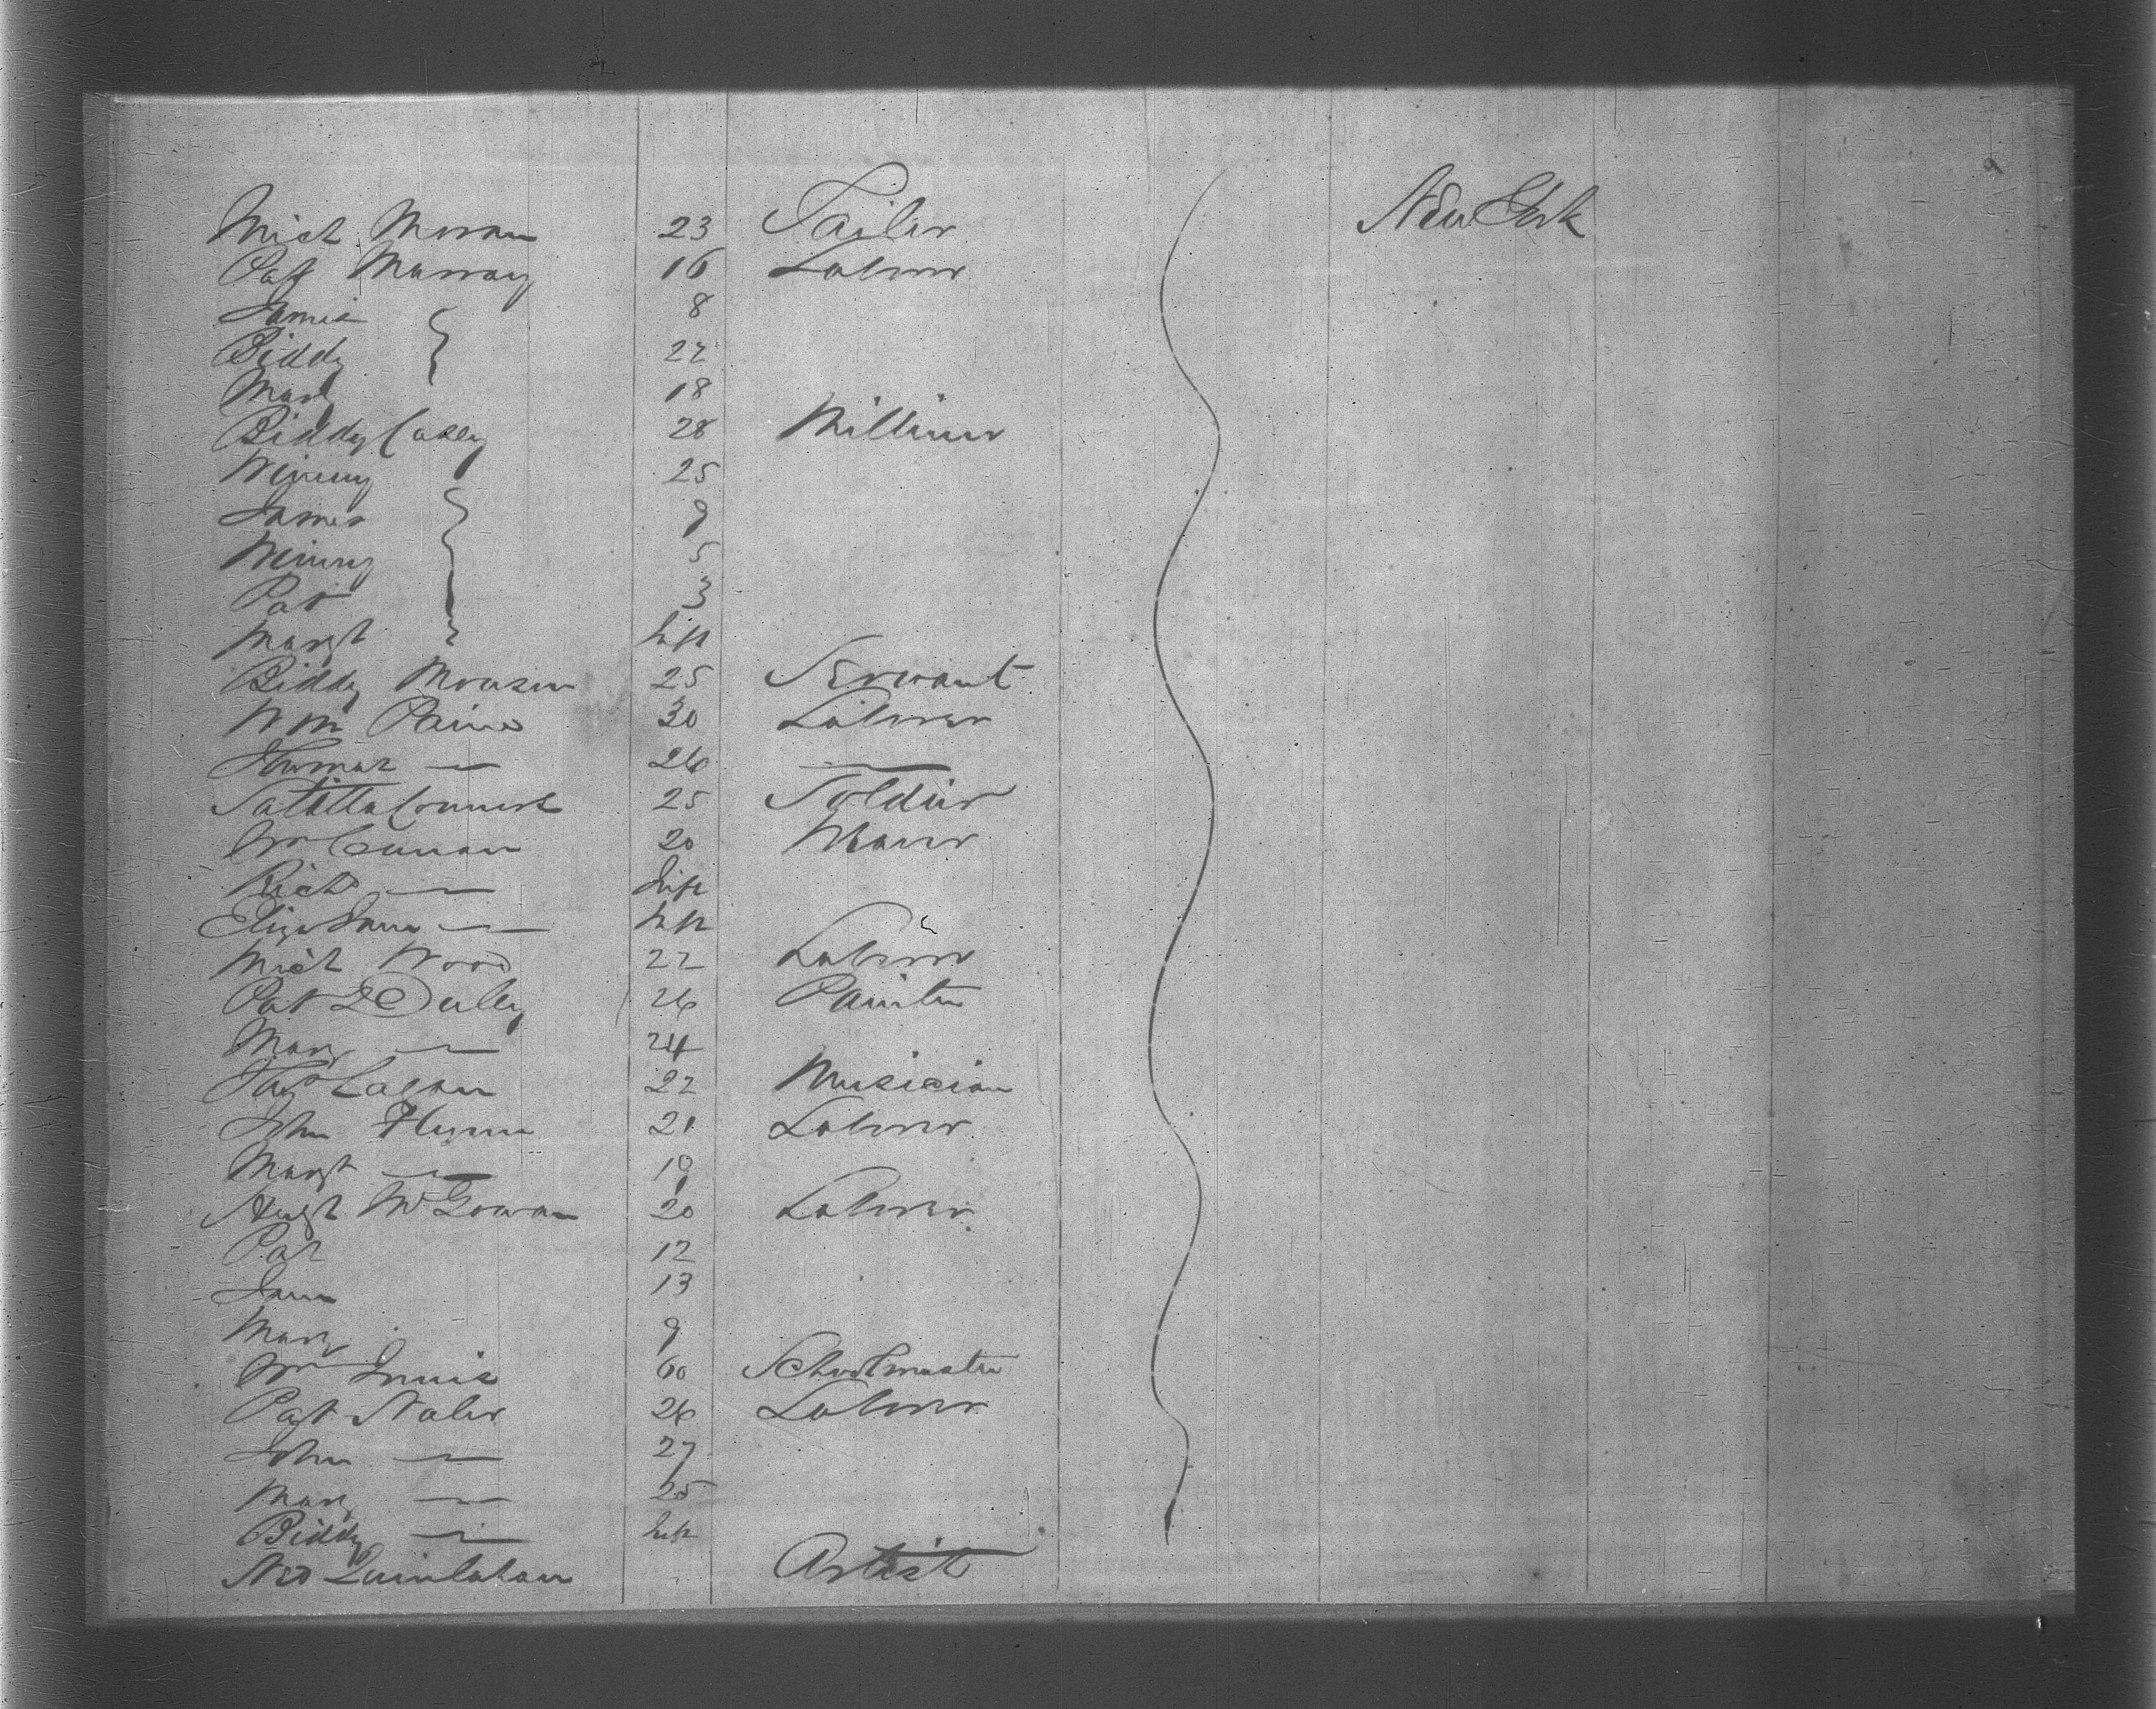 Mich Moran 23 Tailor New York
Pat Murray 16 Laborer
James 8
Biddy 22
Mary 18
Biddy Casey 28 Milliner
Winny 25
James 9
Winny 5
Pat 3
Margt Inft
Biddy 25 Servant
Wm Paine 30 Laborer
Thomas — 26 —
25 Soldier
Wm 20
Richd — Inft
Eliza Jane — Inft
Mich Wood 22 Laborer
Pat 26 Painter
Mary — 24
Thos 22 Musician
John Flynn 21 Laborer
Margt — 19
Hugh McGowan 20 Laborer
Pat 12
Jane 13
Mary 9
Wm Innis 60 Schoolmaster
Pat 26 Laborer
John — 27
Mary — 25
Biddy — Inft
Ned Quinlahan Artist